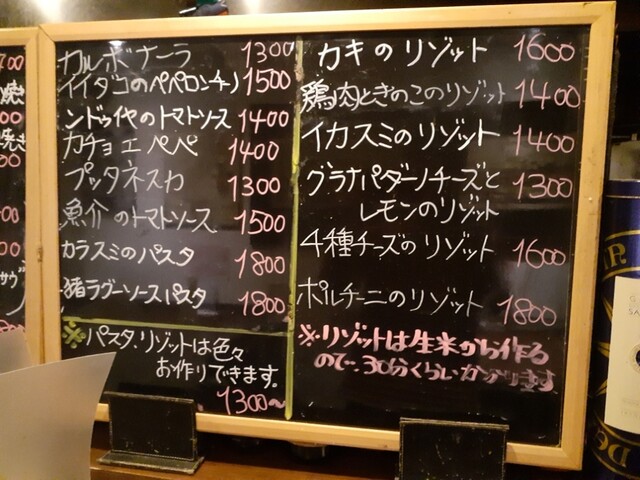 カルボナーラ 1300
イイダコのペペロンチーノ 1500
ンドゥイヤのトマトソース 1400
カチョエペペ 1400
プッタネスカ 1300
魚介のトマトソース 1500
カラスミのパスタ 1800
猪ラグーソースパスタ 1800
※パスタ、リゾットは色々
お作りできます。
1300〜
カキのリゾット 1600
鶏肉ときのこのリゾット 1400
イカスミのリゾット 1400
グラナパダーノチーズと 1300
レモンのリゾット
4種チーズのリゾット 1600
ポルチーニのリゾット 1800
※リゾットは生米から作る
ので、30分くらいかかります